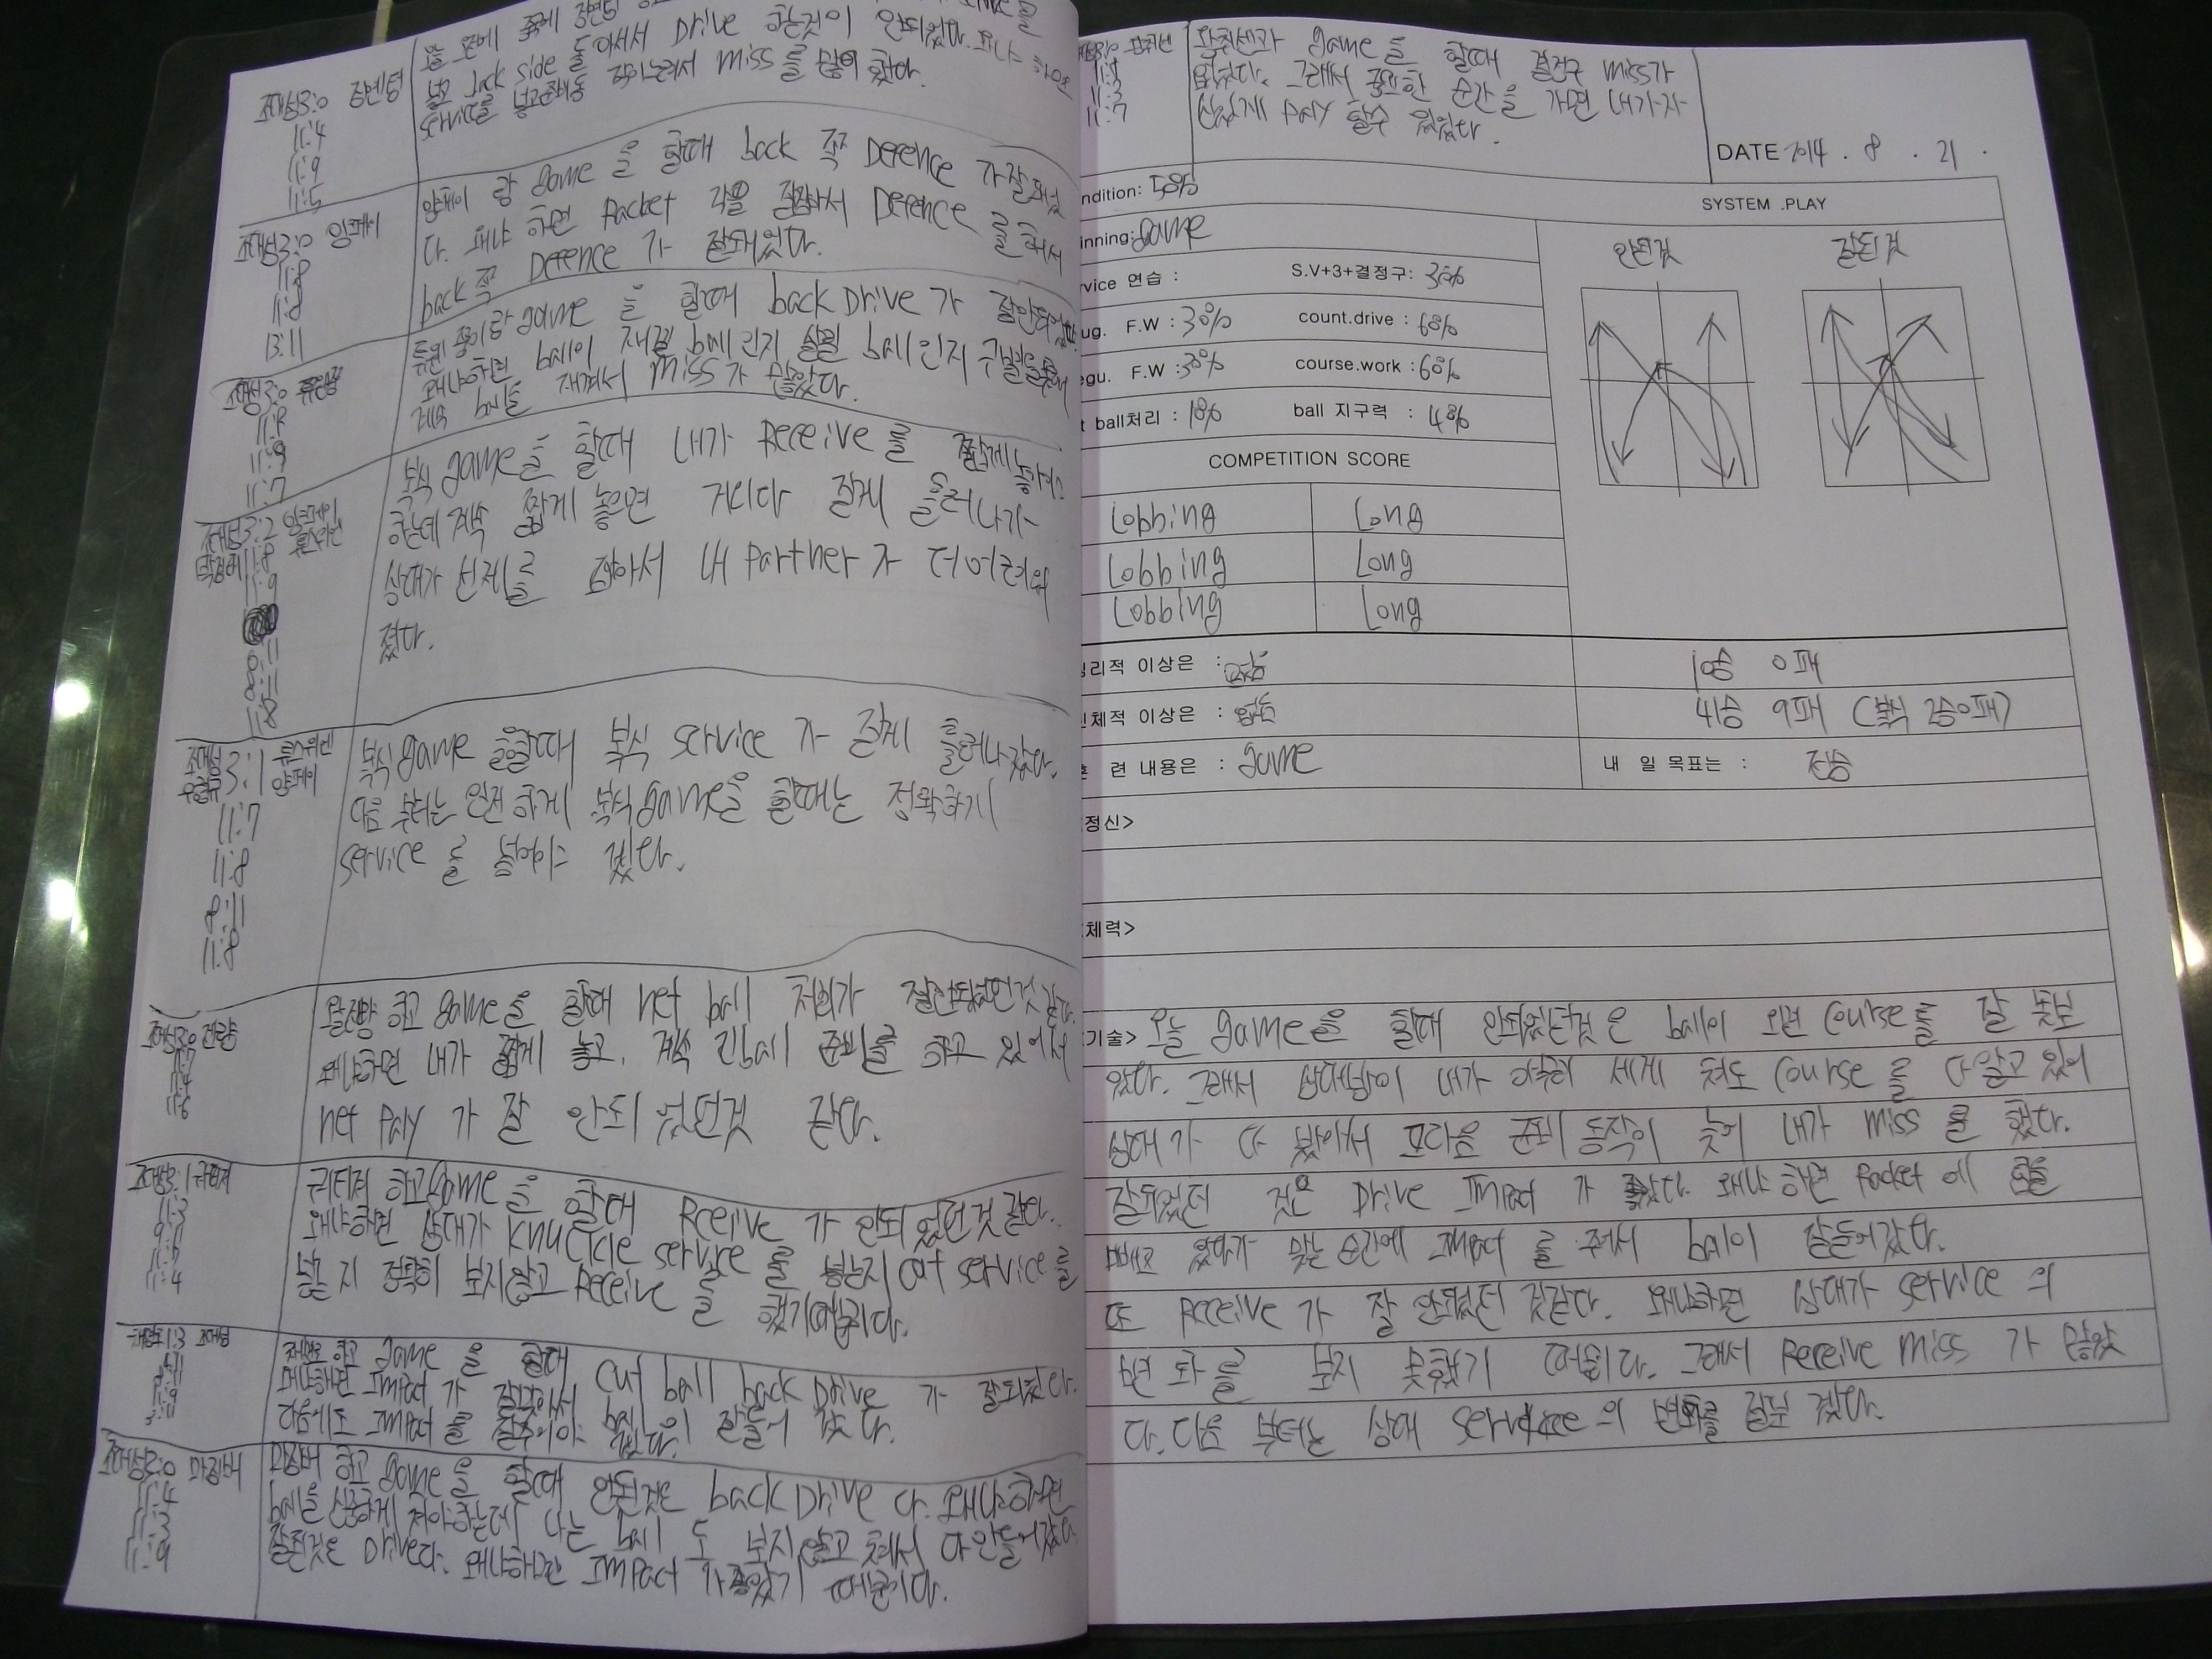 조대성3:0 장멘텅
11:4
11:9
11:5
넣고 back side를 돌아서서 Drive 하는것이 안되었다. 왜냐 하면
service를 넣고 준비동작이 느려서 miss를 많이 했다.
조대성3:0 양페이
11:8
11:8
13:11
양페이 랑 game을 할때 back 쪽 Defence 가 잘되었
다. 왜냐 하면 Packet 각을 잘잡아서 Defence 를 해서
back 쪽 Defence 가 잘되었다.
조대성3:0
11:8
11:9
11:7
game 을 할때 back Drive 가 잘안되었다.
왜냐하면 ball이 재낄 ball인지 살릴 ball인지 구별을못해
계속 ball을 재껴서 miss가 많았다.
조대성3:2 양페이
11:8
11:9
6:11
8:11
11:8
복식 game을 할때 내가 Receive를 짧게 놓아야
하는데 계속 짧게 놓으면 거의다 길게 흘러나가
상대가 선제를 잡아서 내 Partner 가 더 어려워
졌다.
조대성3:1
양페이
11:7
11:8
8:11
11:8
복식 game을할때 복식 service 가 길게 흘러나갔다.
다음 부터는 완전하게 복식 game을 할때는 정확하게
service 를 넣어야 겠다.
조대성3:0
11:7
11:4
11:6
하고 game을 할때 net ball 처리가 잘안되었던것 같다.
왜냐하면 내가 짧게 놓고, 계속 긴ball 준비를 하고 있어서
net Play 가 잘 안되 었던것 같다.
조대성3:1
11:3
11:4
하고 game 을 할때 Receive 가 안되 었던것 같다.
왜냐하면 상대가 knuckle service 를 넣는지 cut service를
넣는 지 정확히 보지않고 Receive 를 했기때문이다.
1:3 조대성
하고 game 을 할때 cut ball back Drive 가 잘되었다.
왜냐하면 Impact 가 잘주어서 ball이 잘들어 갔 다.
다음에도 Impact 를 잘주어야 겠다.
조대성3:0 마징버
11:4
11:9
마징버 하고 game을 할때 안된것은 back Drive 다. 왜냐 하면
ball을 신중하게 쳐야하는데 나는 ball 도 보지 않고 쳐서 다 안들어갔다
잘된것은 Drive다. 왜냐하면 Impact 가 좋았기 때문이다.
11:4
11:3
11:7
game을 할때 결정구 miss가
많았다. 그래서 중요한 순간을 가면 내가 자
신있게 Play 할수 있었다.
DATE 2014 . 8 . 21 .
ndition: 50%
SYSTEM .PLAY
inning: game
안된것 잘된것
rvice 연습 : S.V+3+결정구: 30%
ug. F.W : 30% count.drive : 60%
egu. F.W : 30% course.work : 60%
t ball처리 : 10% ball 지구력 : 40%
COMPETITION SCORE
Lobbing Long
Lobbing Long
Lobbing Long
리적 이상은 : 없음 10승 0패
체적 이상은 : 없음 41승 9패 (복식 2승0패)
련 내용은 : game 내 일 목표는 : 전승
정신>
체력>
기술> 오늘 game을 할때 안되었던것 은 ball이 오면 Course를 잘 못보
았다. 그래서 상대방이 내가 아무리 세게 쳐도 Course 를 다 알고 있어
상대 가 다 받아서 그다음 준비 동작이 늦어 내가 miss 를 했다.
잘되었던 것은 Drive Impact 가 좋았다. 왜냐 하면 Packet 에 힘을
빼고 있다가 맞는 순간에 Impact 를 주어서 ball이 잘들어갔다.
또 Receive 가 잘 안되었던 것같다. 왜냐하면 상대가 service 의
변 화 를 보지 못했기 때문이다. 그래서 Receive miss 가 많았
다. 다음 부터는 상대 service 의 변화를 잘보 겠다.